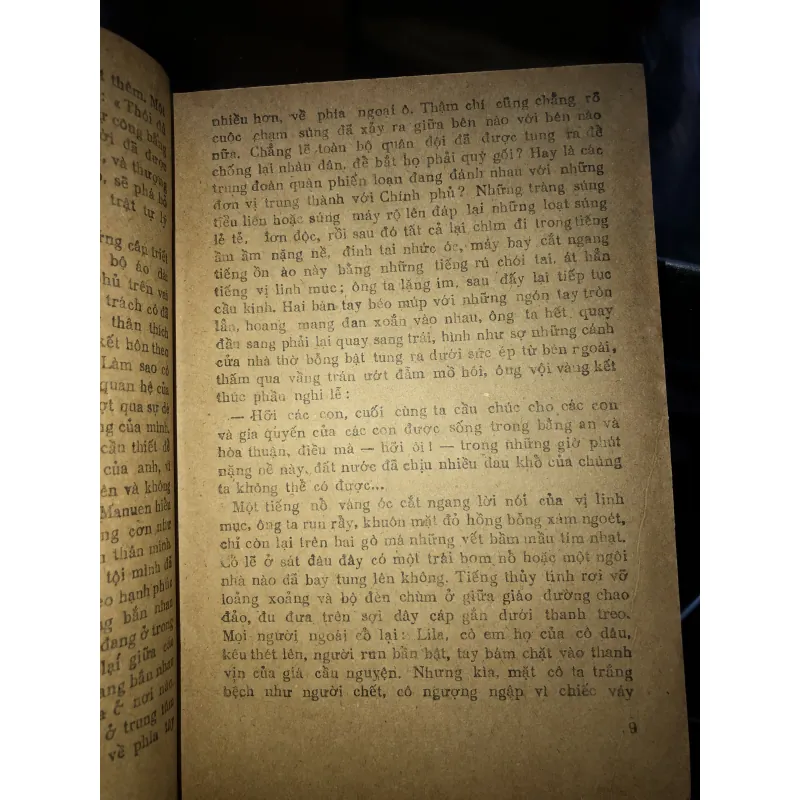 t thêm. Một
: « Thôi đủ
công bằng
ời đã được
, và thượng
, sẽ phá bỏ
trật tự lý
ững cấp triết
bộ áo dài
hủ trên vai
trách có đã
thân thích
kết hôn theo
Làm sao có
quan hệ của
ợt qua sự đe
ng của mình,
cần thiết để
của anh, vì
ên và không
Manuen hiểu
ng cơn như
n thần mình
tội mình đã
eo hạnh phúc
ng bắn nhau
đang ở trong
lại giữa các
ang bắn như
ở nơi nào
ở trung tâm
về phía tây
nhiều hơn, về phía ngoại ô. Thậm chí cũng chẳng rõ
cuộc chạm súng đã xảy ra giữa bên nào với bên nào
nữa. Chẳng lẽ toàn bộ quân đội đã được tung ra để
chống lại nhân dân, để bắt họ phải quỳ gối? Hay là các
trung đoàn quân phiến loạn đang đánh nhau với những
đơn vị trung thành với Chính phủ? Những tràng súng
tiểu liên hoặc súng máy rộ lên đáp lại những loạt súng
lẻ tẻ, đơn độc, rồi sau đó tất cả lại chìm đi trong tiếng
ầm ầm nặng nề, đinh tai nhức óc, máy bay cắt ngang
tiếng ồn ào này bằng những tiếng rú chói tai, át hẳn
tiếng vị linh mục; ông ta lặng im, sau đấy lại tiếp tục
cầu kinh. Hai bàn tay béo múp với những ngón tay tròn
lẳn, hoang mang đan xoắn vào nhau, ông ta hết quay
đầu sang phải lại quay sang trái, hình như sợ những cánh
cửa nhà thờ bỗng bật tung ra dưới sức ép từ bên ngoài,
thấm qua vầng trán ướt đẫm mồ hôi, ông vội vàng kết
thúc phần nghi lễ:
— Hỡi các con, cuối cùng ta cầu chúc cho các con
và gia quyến của các con được sống trong bằng an và
hòa thuận, điều mà — hỡi ôi! — trong những giờ phút
nặng nề này, đất nước đã chịu nhiều đau khổ của chúng
ta không thể có được...
Một tiếng nổ váng óc cắt ngang lời nói của vị linh
mục, ông ta run rẩy, khuôn mặt đỏ hồng bỗng xám ngoét,
chỉ còn lại trên hai gò má những vết bầm mầu tím nhạt.
Có lẽ ở sát đâu đây có một trái bom nổ hoặc một ngôi
nhà nào đã bay tung lên không. Tiếng thủy tinh rơi vỡ
loảng xoảng và bộ đèn chùm ở giữa giáo đường chao
đảo, đu đưa trên sợi dây cáp gắn dưới thanh treo.
Mọi người ngoái cổ lại: Lila, cô em họ của cô dâu,
kêu thét lên, người run bần bật, tay bám chặt vào thanh
vịn của giá cầu nguyện. Nhưng kìa, mặt cô ta trắng
bệch như người chết, cô ngượng ngập vì chiếc váy
9